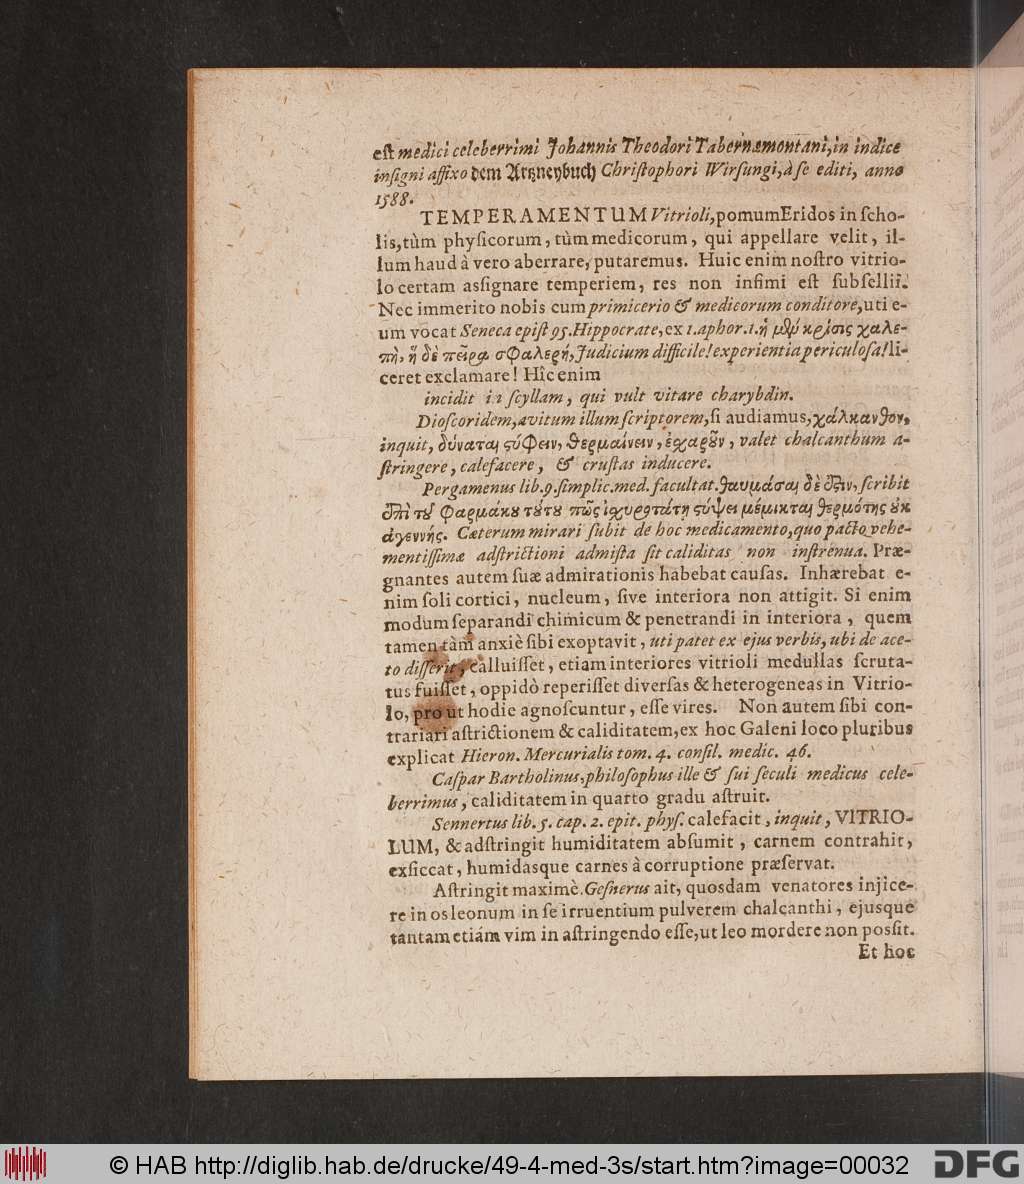 est medici celeberrimi Johannis Theodori Tabernæmontani, in indice
insigni affixo dem Artzneybuch Christophori Wirsungi, à se editi, anno
1588.
TEMPERAMENTUM Vitrioli, pomum Eridos in scho-
lis, tùm physicorum, tùm medicorum, qui appellare velit, il-
lum haud à vero aberrare, putaremus. Huic enim nostro vitrio-
lo certam assignare temperiem, res non infimi est subsellii.
Nec immerito nobis cum primicerio & medicorum conditore, uti e-
um vocat Seneca epist 95. Hippocrate, ex 1. aphor. 1. ἡ μὲν κρίσις χαλε-
πὴ, ἡ δὲ πεῖρα σφαλερή, Judicium difficile! experientia periculosa! li-
ceret exclamare! Hîc enim
incidit in scyllam, qui vult vitare charybdin.
Dioscoridem, avitum illum scriptorem, si audiamus, χάλκανθον,
inquit, δύναται ςύφειν, θερμαίνειν, ἐχαροῦν, valet chalcanthum a-
stringere, calefacere, & crustas inducere.
Pergamenus lib. 9. simplic. med. facultat. θαυμάσαι δὲ ὅξιν, scribit
ἐπὶ τοῦ φαρμάκου τούτου πῶς ἰχυροτάτη ςύψει μέμικται θερμότης οὐκ
ἀγεννής. Cæterum mirari subit de hoc medicamento, quo pacto vehe-
mentissimæ adstrictioni admista sit caliditas non instrenua. Præ-
gnantes autem suæ admirationis habebat causas. Inhærebat e-
nim soli cortici, nucleum, sive interiora non attigit. Si enim
modum separandi chimicum & penetrandi in interiora, quem
tamen tàm anxiè sibi exoptavit, uti patet ex ejus verbis, ubi de ace-
to disserit, calluisset, etiam interiores vitrioli medullas scruta-
tus fuisset, oppidò reperisset diversas & heterogeneas in Vitrio-
lo, pro ut hodie agnoscuntur, esse vires. Non autem sibi con-
trariari astrictionem & caliditatem, ex hoc Galeni loco pluribus
explicat Hieron. Mercurialis tom. 4. consil. medic. 46.
Caspar Bartholinus, philosophus ille & sui seculi medicus cele-
berrimus, caliditatem in quarto gradu astruit.
Sennertus lib. 5. cap. 2. epit. phys. calefacit, inquit, VITRIO-
LUM, & adstringit humiditatem absumit, carnem contrahit,
exsiccat, humidasque carnes à corruptione præservat.
Astringit maximè. Gesnerus ait, quosdam venatores injice-
re in os leonum in se irruentium pulverem chalcanthi, ejusque
tantam etiám vim in astringendo esse, ut leo mordere non possit.
Et hoc
© HAB http://diglib.hab.de/drucke/49-4-med-3s/start.htm?image=00032
DFG